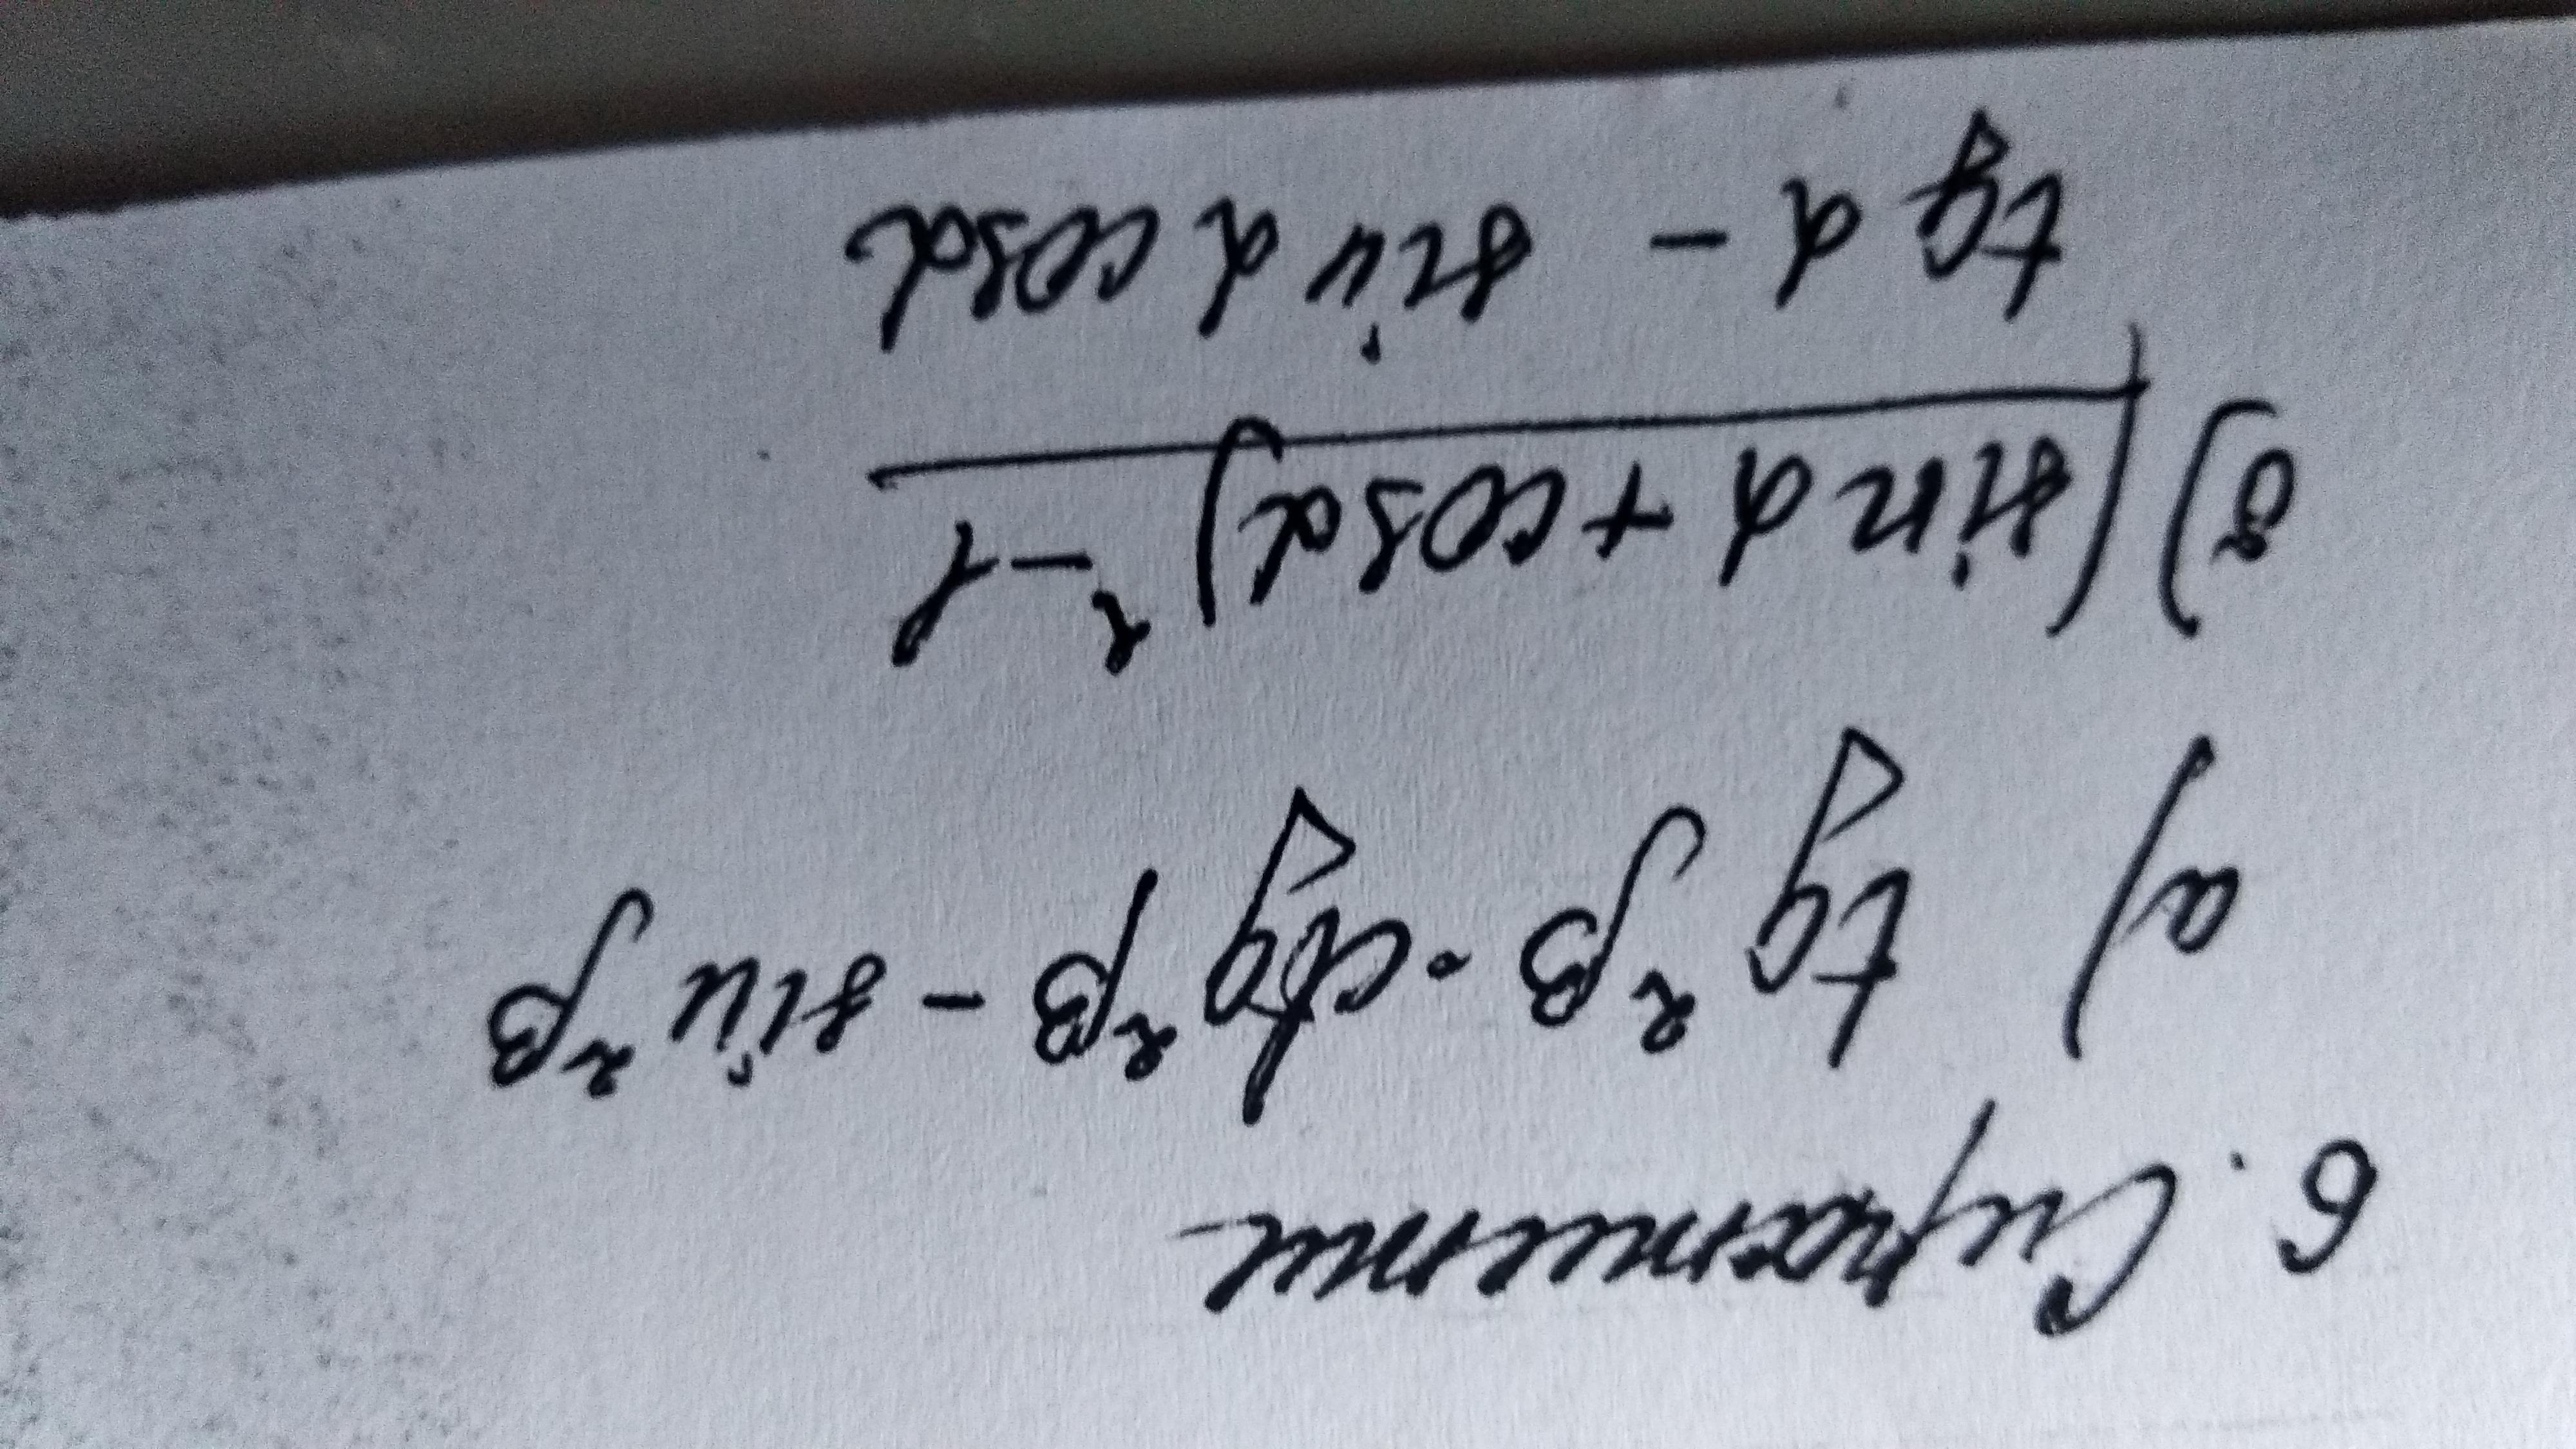 6. Спростити
а) tg²β · ctg²β - sin²β
б) (sin α + cos α)² - 1
tg α - sin α cos α